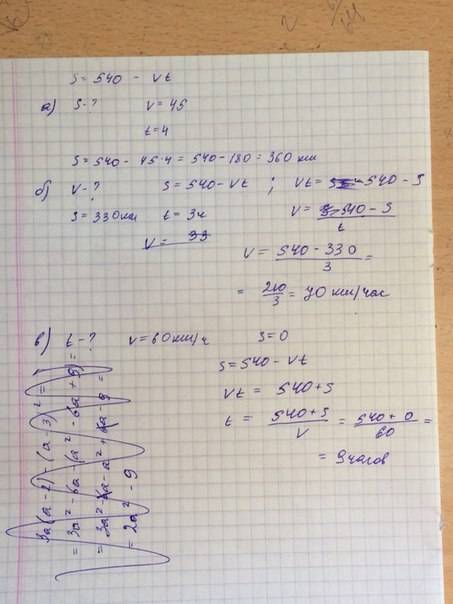 S = 540 - vt
а) S - ? v = 45
t = 4
S = 540 - 45·4 = 540 - 180 = 360 км
б) v - ? S = 540 - vt ; vt = 540 - S
S = 330 км t = 3ч v = 540 - S / t
v = 33
v = 540 - 330 / 3 =
= 210 / 3 = 70 км/час
в) t - ? v = 60 км/ч S = 0
S = 540 - vt
vt = 540 + S
t = 540 + S / v = 540 + 0 / 60 =
= 9 часов
3a(a - 2) - (a - 3)² =
= 3a² - 6a - (a² - 6a + 9) =
= 3a² - 6a - a² + 6a - 9 =
= 2a² - 9